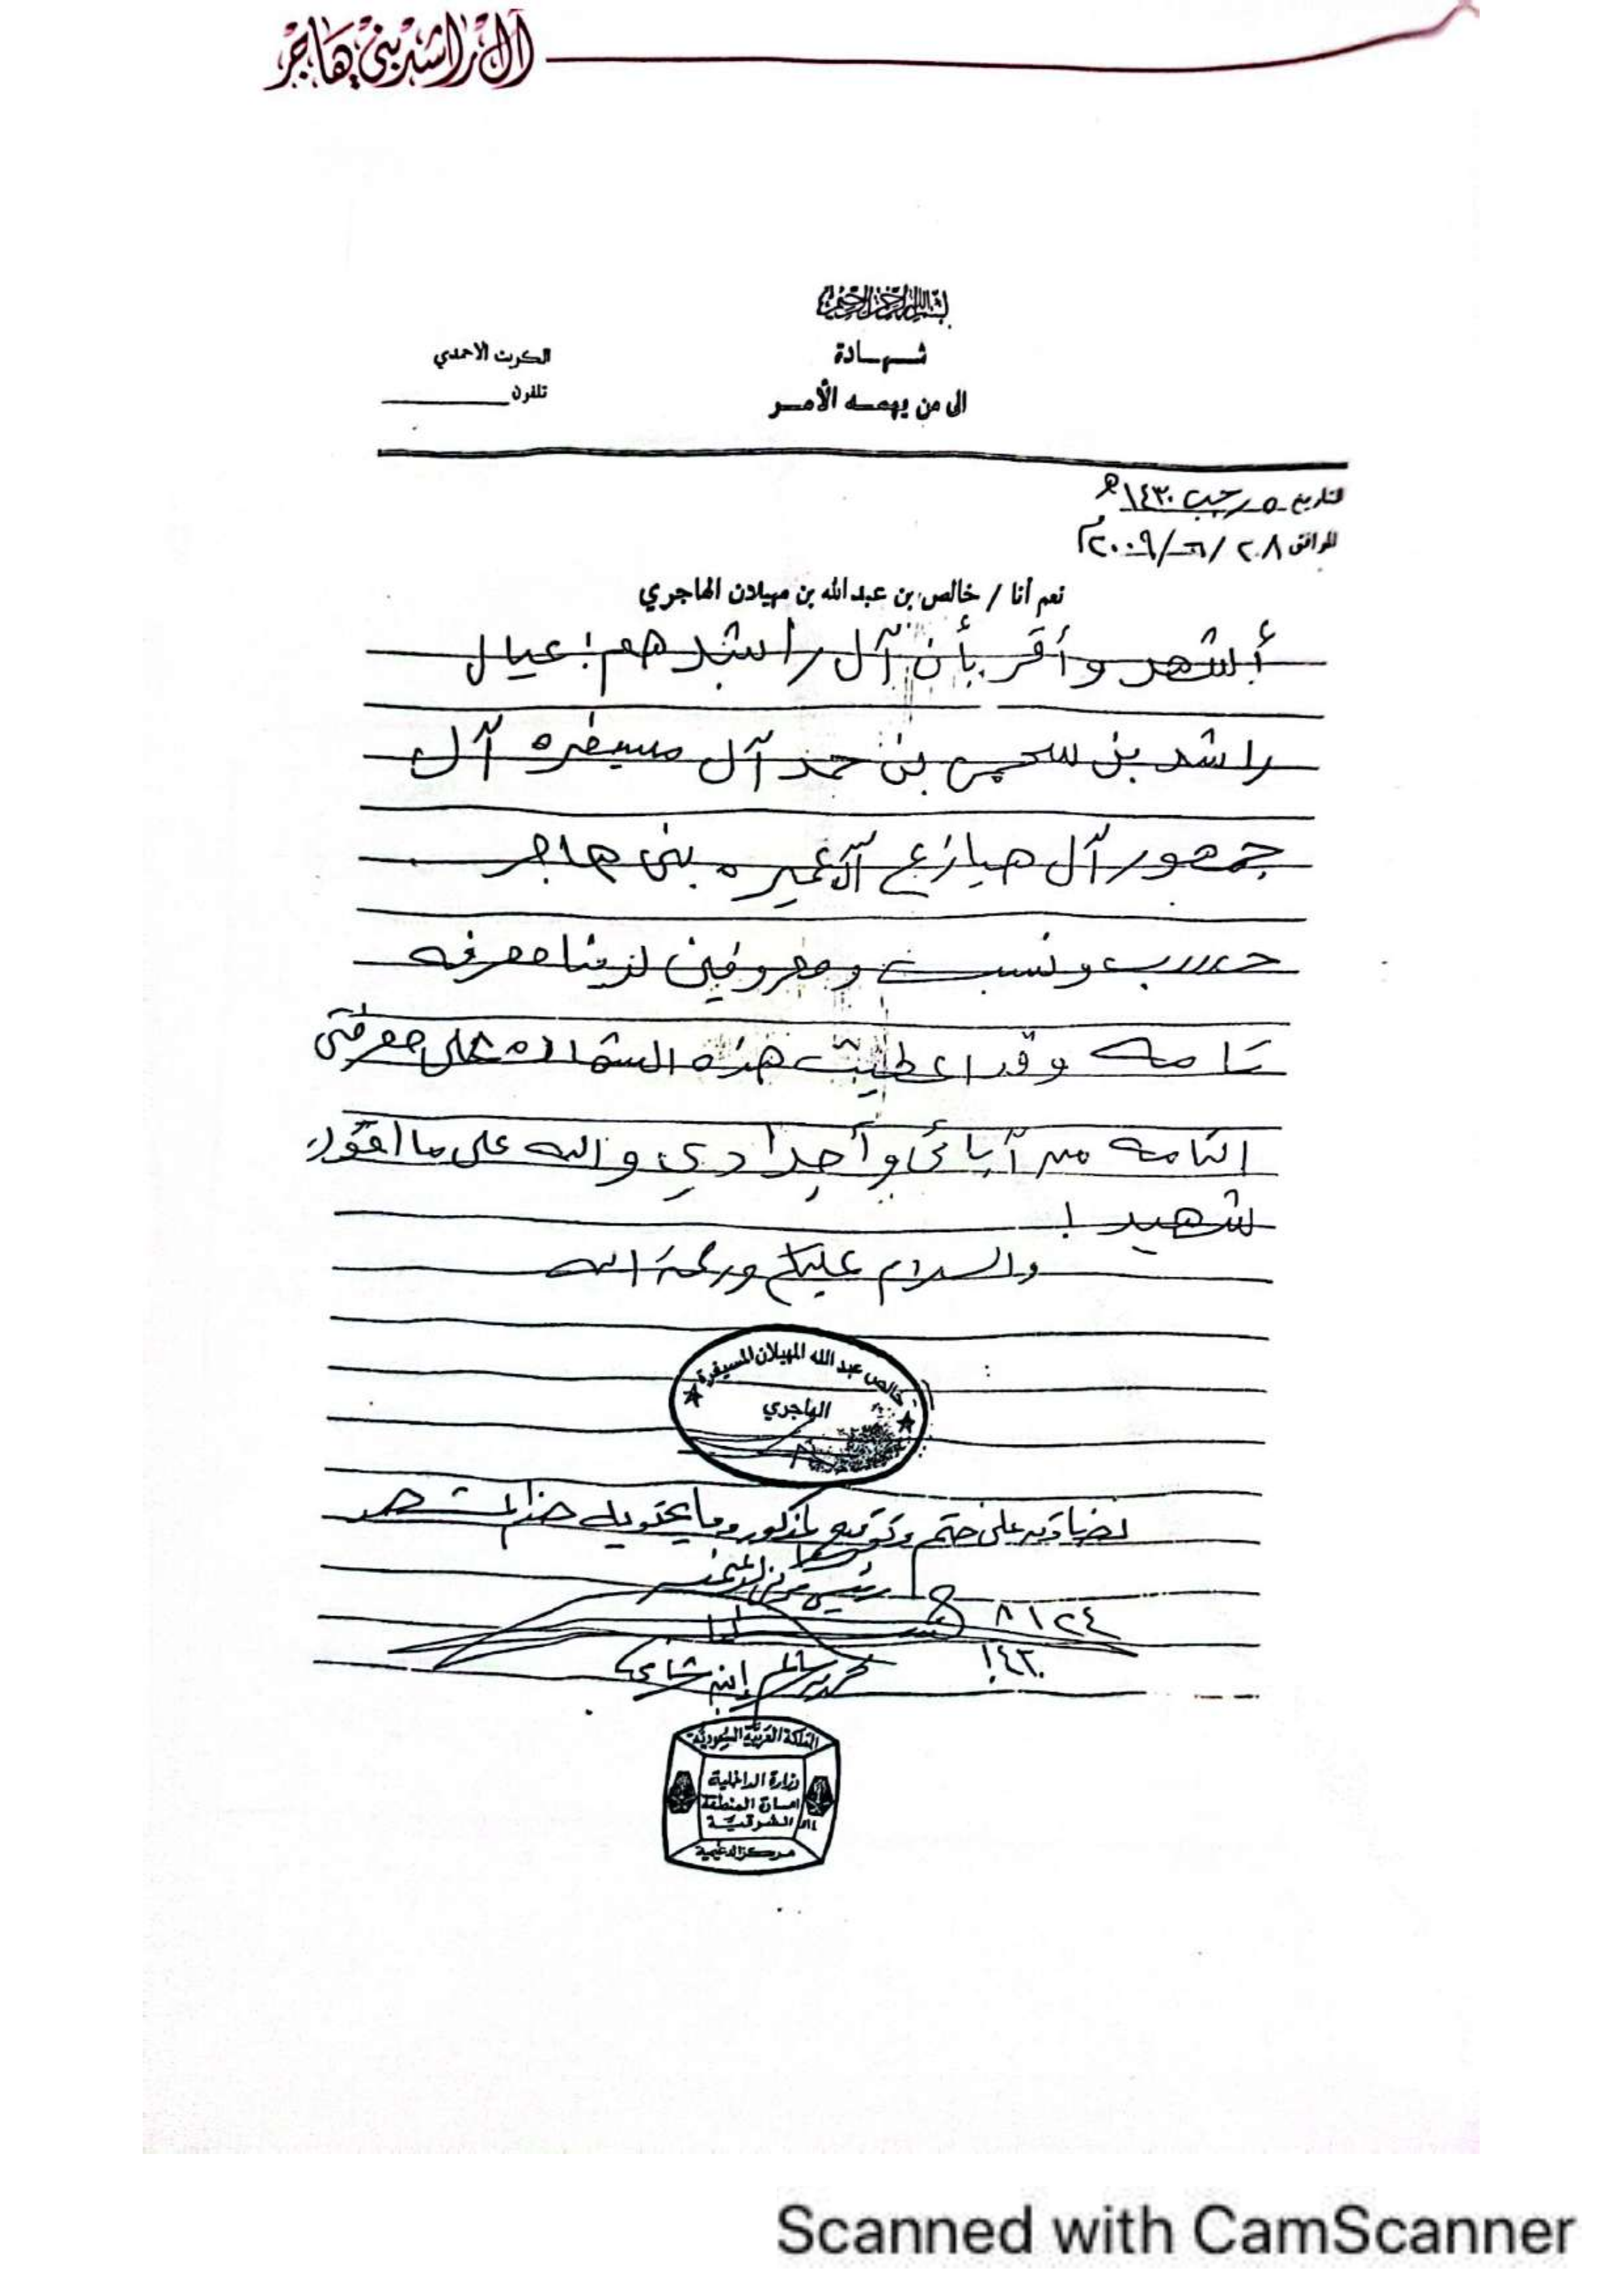 آل راشد بني هاجر
بسم الله الرحمن الرحيم
شهادة
الكويت الاحمدي
الى من يهمه الأمر
تلفون
التاريخ ٥ رجب ١٤٣٠هـ
الموافق ٢٨/٦/٢٠٠٩م
نعم أنا / خالص بن عبدالله بن مهيلان الهاجري
أشهد وأقر بأن آل راشد هم: عيال
راشد بن سحمي بن حمد آل مسيفره آل
جمهور آل هبارع آل عميره بني هاجر
حسب ونسب ومعروفين لدينا معرفه
تامه وقد اعطيت هذه الشهاده على معرفتي
التامه من آبائي وأجدادي والله على ما اقول
شهيد !
والسلام عليكم ورحمة الله
خالص عبد الله المهيلان المسيفرة
الهاجري
على ختم وتوقيع المذكور وما يحتويه هذا المشهد
رئيس مركز
٢٤ / ٨
١٤٣٠
المملكة العربية السعودية
وزارة الداخلية
امارة المنطقة
الشرقية
مركز الدغيمية
Scanned with CamScanner